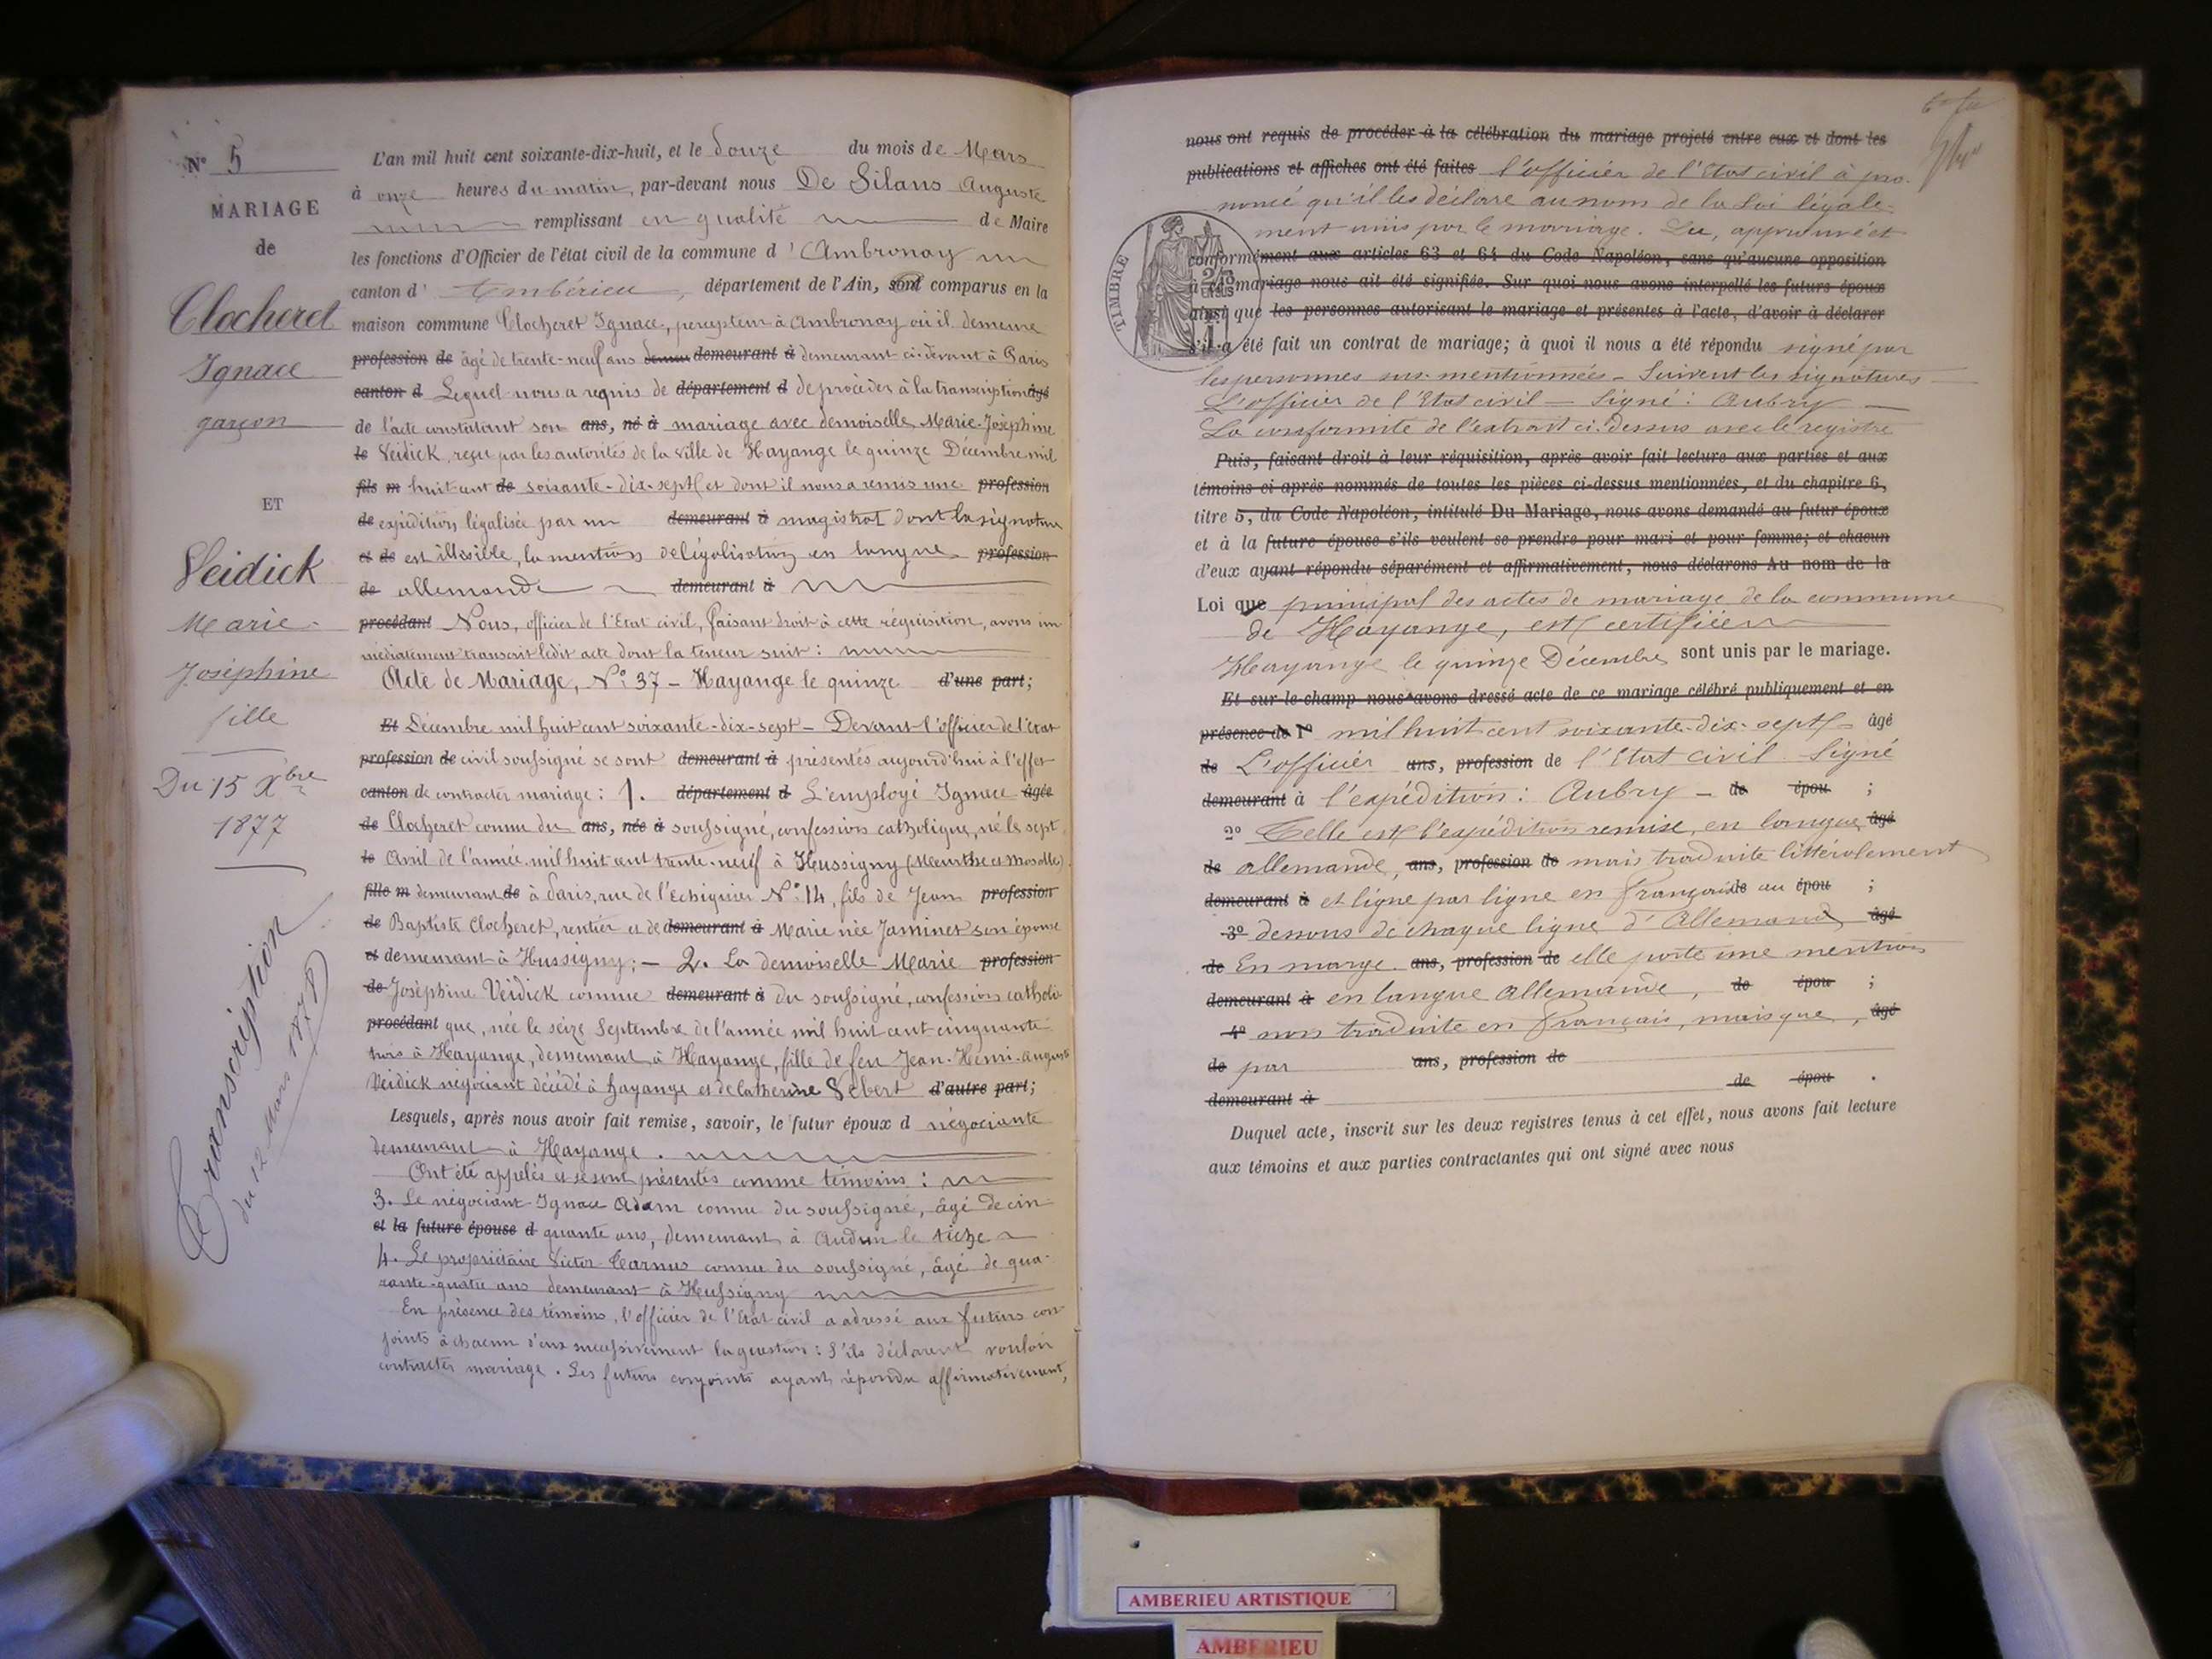 N° 5
MARIAGE
de
Clocheret
Ignace
garçon
ET
Veidick
Marie-
Joséphine
fille
Du 15 Xbre
1877
Transcription
du 12 Mars 1878
L'an mil huit cent soixante-dix-huit, et le douze du mois de Mars
à onze heures du matin, par-devant nous De Silans Auguste
remplissant en qualité de Maire
les fonctions d'Officier de l'état civil de la commune d' Ambronay
canton d' Ambérieu, département de l'Ain, sont comparus en la
maison commune Clocheret Ignace, percepteur à Ambronay où il demeure
profession de âgé de trente-neuf ans demeurant à demeurant ci-devant à Paris
canton d Lequel nous a requis de département d de procéder à la transcription âgé
de l'acte constatant son ans, né à mariage avec demoiselle Marie-Joséphine
le Veidick, reçu par les autorités de la ville de Hayange le quinze Décembre mil
fils m huit cent de soixante-dix-sept et dont il nous a remis une profession
de expédition légalisée par un demeurant à magistrat dont la signature
et de est illisible, la mention de légalisation en langue profession
de allemande demeurant à
procédant Nous, officier de l'Etat civil, faisant droit à cette réquisition, avons im
médiatement transcrit ledit acte dont la teneur suit :
Acte de Mariage, N° 37 - Hayange le quinze d'une part;
Et Décembre mil huit cent soixante-dix-sept - Devant l'officier de l'etat
profession de civil soussigné se sont demeurant à présentés aujourd'hui à l'effet
canton de contracter mariage : 1. département d L'employé Ignace âgée
de Clocheret connu du ans, née à soussigné, confession catholique, né le sept
le Avril de l'année mil huit cent trente-neuf à Hussigny (Meurthe et Moselle)
fille m demeurant de à Paris, rue de l'Echiquier N° 14, fils de Jean profession
de Baptiste Clocheret, rentier et de demeurant à Marie née Jaminet son épouse
et demeurant à Hussigny; - 2. La demoiselle Marie profession
de Joséphine Veidick connue demeurant à du soussigné, confession catholi-
procédant que, née le seize Septembre de l'année mil huit cent cinquante-
trois à Hayange, demeurant à Hayange, fille de feu Jean-Henri-Auguste
Veidick négociant décédé à hayange et de Catherine Sebert d'autre part;
Lesquels, après nous avoir fait remise, savoir, le futur époux d négociante
demeurant à Hayange.
Ont été appelés et se sont présentés comme témoins :
3. Le négociant Ignace Adam connu du soussigné, âgé de cin-
et la future épouse d quante ans, demeurant à Audun le tiche
4. Le propriétaire Victor Carnus connu du soussigné, âgé de qua-
rante-quatre ans demeurant à Hussigny
En présence des témoins, l'officier de l'Etat civil a adressé aux futurs con-
joints à chacun d'eux successivement la question : s'ils déclarent vouloir
contracter mariage. Les futurs conjoints ayant répondu affirmativement,
nous ont requis de procéder à la célébration du mariage projeté entre eux et dont les
publications et affiches ont été faites l'officier de l'Etat civil à pro-
noncé qu'il les déclare au nom de la Loi légale-
ment unis par le mariage. Lu, approuvé et
TIMBRE
conformément aux articles 63 et 64 du Code Napoléon, sans qu'aucune opposition
à ce mariage nous ait été signifiée. Sur quoi nous avons interpellé les futurs époux
ainsi que les personnes autorisant le mariage et présentes à l'acte, d'avoir à déclarer
s'il a été fait un contrat de mariage; à quoi il nous a été répondu signé par
les personnes sus-mentionnées - Suivent les signatures
L'officier de l'Etat civil - Signé : Aubry -
La conformité de l'extrait ci-dessus avec le registre
Puis, faisant droit à leur réquisition, après avoir fait lecture aux parties et aux
témoins ci après nommés de toutes les pièces ci-dessus mentionnées, et du chapitre 6,
titre 5, du Code Napoléon, intitulé Du Mariage, nous avons demandé au futur époux
et à la future épouse s'ils veulent se prendre pour mari et pour femme; et chacun
d'eux ayant répondu séparément et affirmativement, nous déclarons Au nom de la
Loi que principal des actes de mariage de la commune
de Hayange, est certifiée
Hayange le quinze Décembre sont unis par le mariage.
Et sur-le-champ nous avons dressé acte de ce mariage célébré publiquement et en
présence de 1° mil huit cent soixante-dix-sept âgé
de L'officier ans, profession de l'Etat civil Signé
demeurant à l'expédition : Aubry - de épou ;
2° Telle est l'expédition remise, en langue âgé
de allemande, ans, profession de mais traduite littéralement
demeurant à et ligne par ligne en français de au épou ;
3° dessous de chaque ligne d'Allemand âgé
de En marge ans, profession de elle porte une mention
demeurant à en langue Allemande, de épou ;
4° non traduite en français, mais que, âgé
de par ans, profession de
demeurant à de épou .
Duquel acte, inscrit sur les deux registres tenus à cet effet, nous avons fait lecture
aux témoins et aux parties contractantes qui ont signé avec nous
AMBERIEU ARTISTIQUE
AMBERIEU